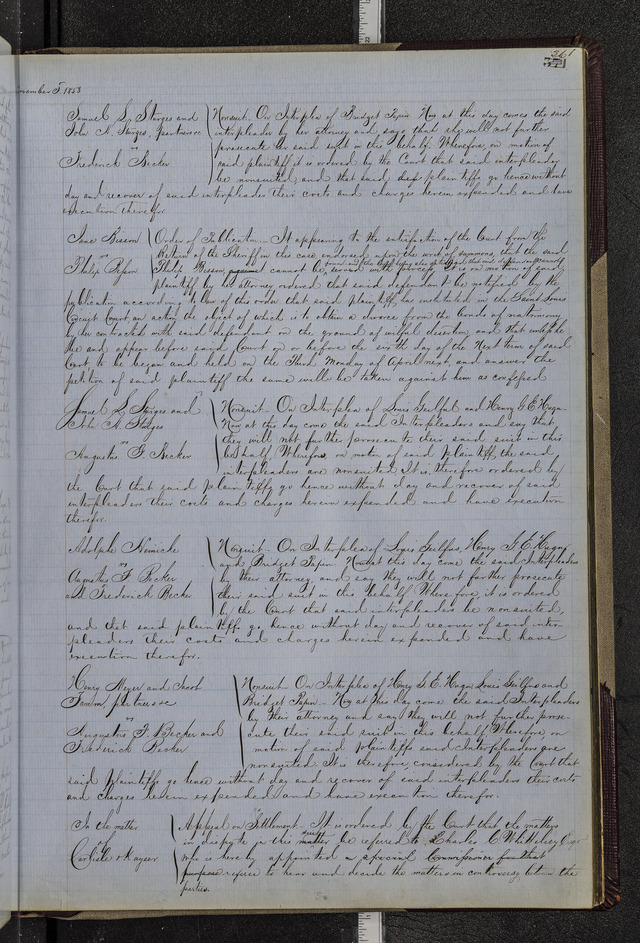 361
November 5, 1853
Samuel S. Sturges and
John A. Sturges, partners &c
vs
Frederick Becker
Nonsuit. On Interplea of Bridget Now at this day comes the said
interpleader by her attorney and says that she will not further
prosecute her said suit in this behalf. Wherefore, on motion of
said plaintiff, it is ordered by the Court that said interpleader
be nonsuited, and that said plaintiffs go hence without
day and recover of said interpleader their costs and charges herein expended and have
execution therefor.
Jane
vs
Philip
Order of Publication. It appearing to the satisfaction of the Court from the
Return of the Sheriff in this case endorsed upon the writ of summons, that the said
Philip cannot be served with process. It is on motion of said
plaintiff by her attorney ordered that said defendant be notified by the
publication according to law of this order that said plaintiff has instituted in the Saint Louis
Circuit Court an action the object of which is to obtain a divorce from the bonds of matrimony
by her contracted with said defendant on the ground of wilful desertion, and that unless he
be and appear before said Court on or before the sixth day of the Next term of said
Court to be began and held on the Third Monday of April next and answer the
petition of said plaintiff the same will be taken against him as confessed
Samuel S. Sturges and
John A. Sturges
vs
Augustus F. Becker
Nonsuit. On Interplea of Louis and Henry G E
Now at this day come the said Interpleaders and say that
they will not further prosecute their said suit in this
behalf Wherefore, on motion of said Plaintiffs, the said
interpleaders are nonsuited. It is, therefore ordered by
the Court that said plaintiffs go hence without day and recover of said
interpleaders their costs and charges herein expended and have execution
therefor.
Adolph
vs
Augustus F Becker
and Frederick Becker
Nonsuit. On Interplea of Louis Henry G. E.
and Bridget Now at this day come the said Interpleaders
by their Attorney, and say they will not further prosecute
their said suit in this behalf. Wherefore, it is ordered
by the Court that said interpleaders be nonsuited,
and that said plaintiffs go hence without day and recover of said inter-
pleaders their costs and charges herein expended and have
execution therefor.
Henry Meyer and Jacob
partners &c
vs
Augustus F. Becker and
Frederick Becker
Nonsuit. On Interplea of Henry G. E. Louis and
Bridget Now at this day come the said Interpleaders
by their attorney and say they will not further prose-
cute their said suit in this behalf. Wherefore, on
motion of said plaintiffs said Interpleaders are
nonsuited. It is therefore, considered by the Court that
said Plaintiffs go hence without day and recover of said interpleaders their costs
and charges herein expended, and have execution therefor.
In the matter
Carlisle & Kayser
Appeal on Settlement. It is ordered by the Court that the matters
in dispute in this matter be referred to Charles C Whittelsey Esqr
who is here by appointed a special Commissioner
purpose referee to hear and decide the matters in controversy between the
parties.